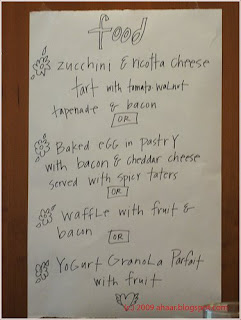 food
zucchini & ricotta cheese
tart with tomato-walnut
tapenade & bacon
OR
Baked egg in pastry
with bacon & cheddar cheese
served with spicy taters
OR
waffle with fruit &
bacon
OR
Yogurt Granola Parfait
with fruit
(C) 2009 ahaar.blogspot.com